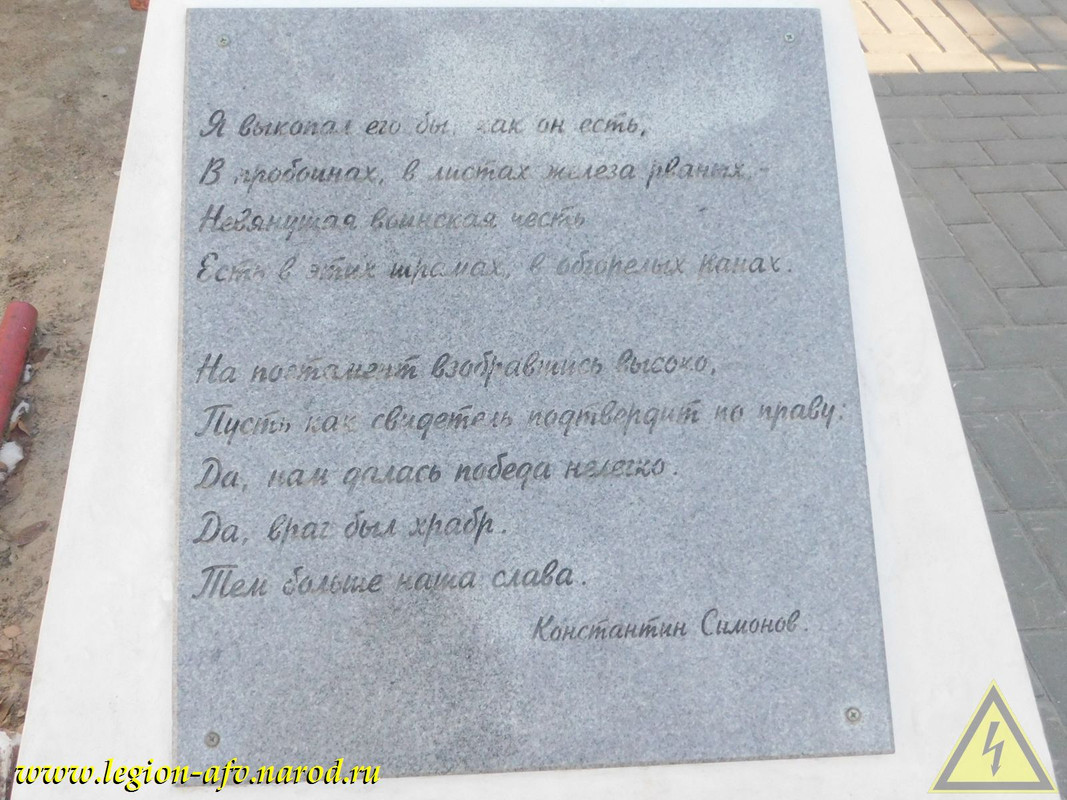 Я выкопал его бы, как он есть,
В пробоинах, в листах железа рваных,-
Невянущая воинская честь
Есть в этих шрамах, в обгорелых ранах.
На постамент взобравшись высоко,
Пусть как свидетель подтвердит по праву:
Да, нам далась победа нелегко.
Да, враг был храбр.
Тем больше наша слава.
Константин Симонов.
www.legion-afv.narod.ru